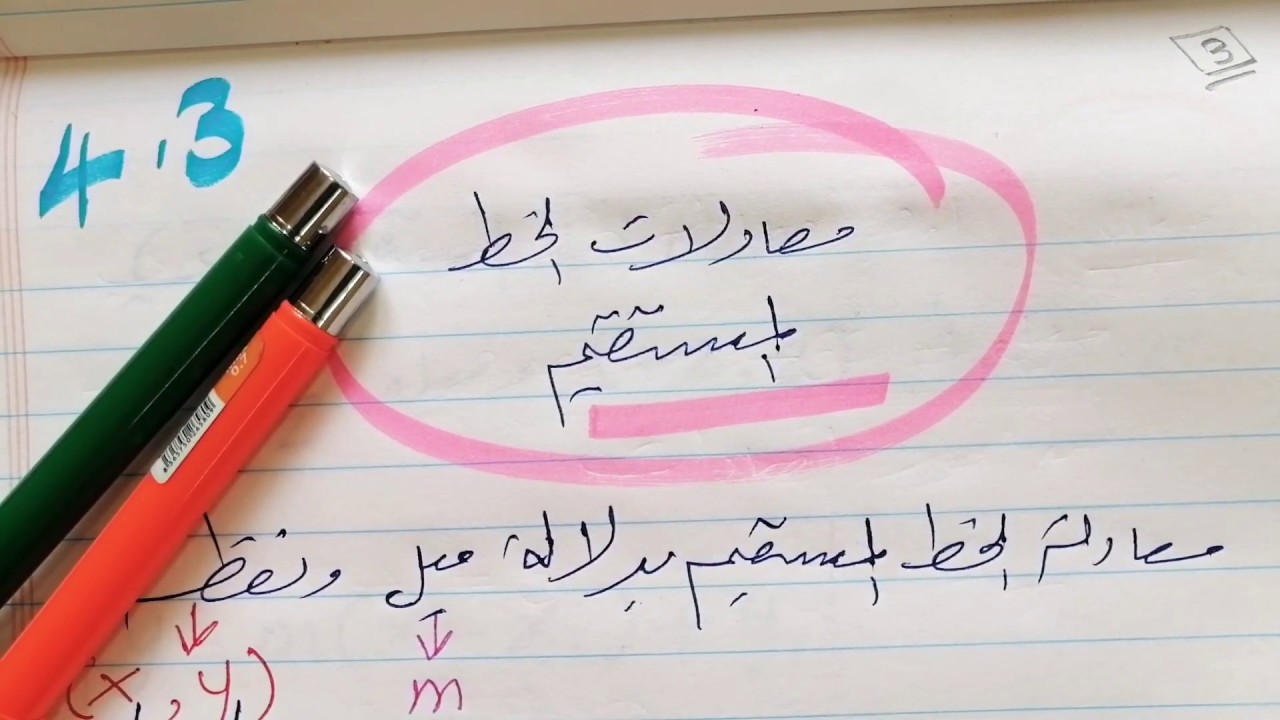 3
4.3
معادلات الخط
المستقيم
معادلة الخط المستقيم بدلالة ميل ونقطة
↓ ↓
m (x₁, y₁)
0.7